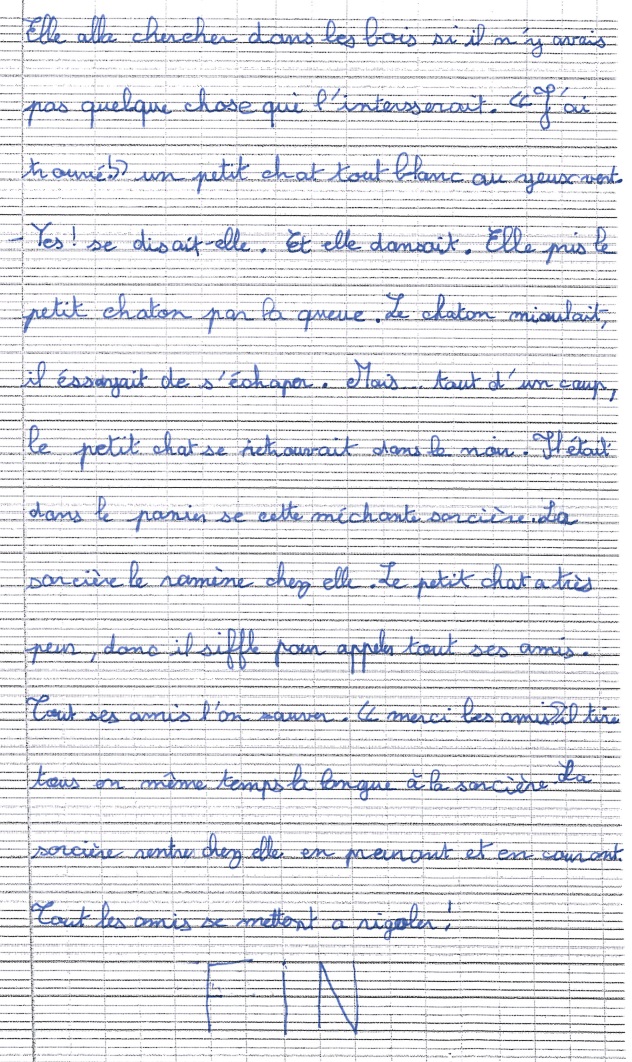 Elle alla chercher dans les bois si il n'y avais
pas quelque chose qui l'interesserait. « J'ai
trouvé » un petit chat tout blanc au yeux vert.
- Yes ! se disait-elle. Et elle dansait. Elle pris le
petit chaton par la queue. Le chaton mioulait,
il éssayait de s'échaper. Mais... tout d'un coup,
le petit chat se retrouvait dans le noir. Il était
dans le panin se cette méchante sorcière. La
sorcière le ramène chez elle. Le petit chat a très
peur, donc il siffle pour appeler tout ses amis.
Tout ses amis l'on sauver. « merci les amis » il tire
tous en même temps la langue à la sorcière La
sorcière rentre chez elle en pleurant et en courant.
Tout les amis se mettent a rigoler !
FIN